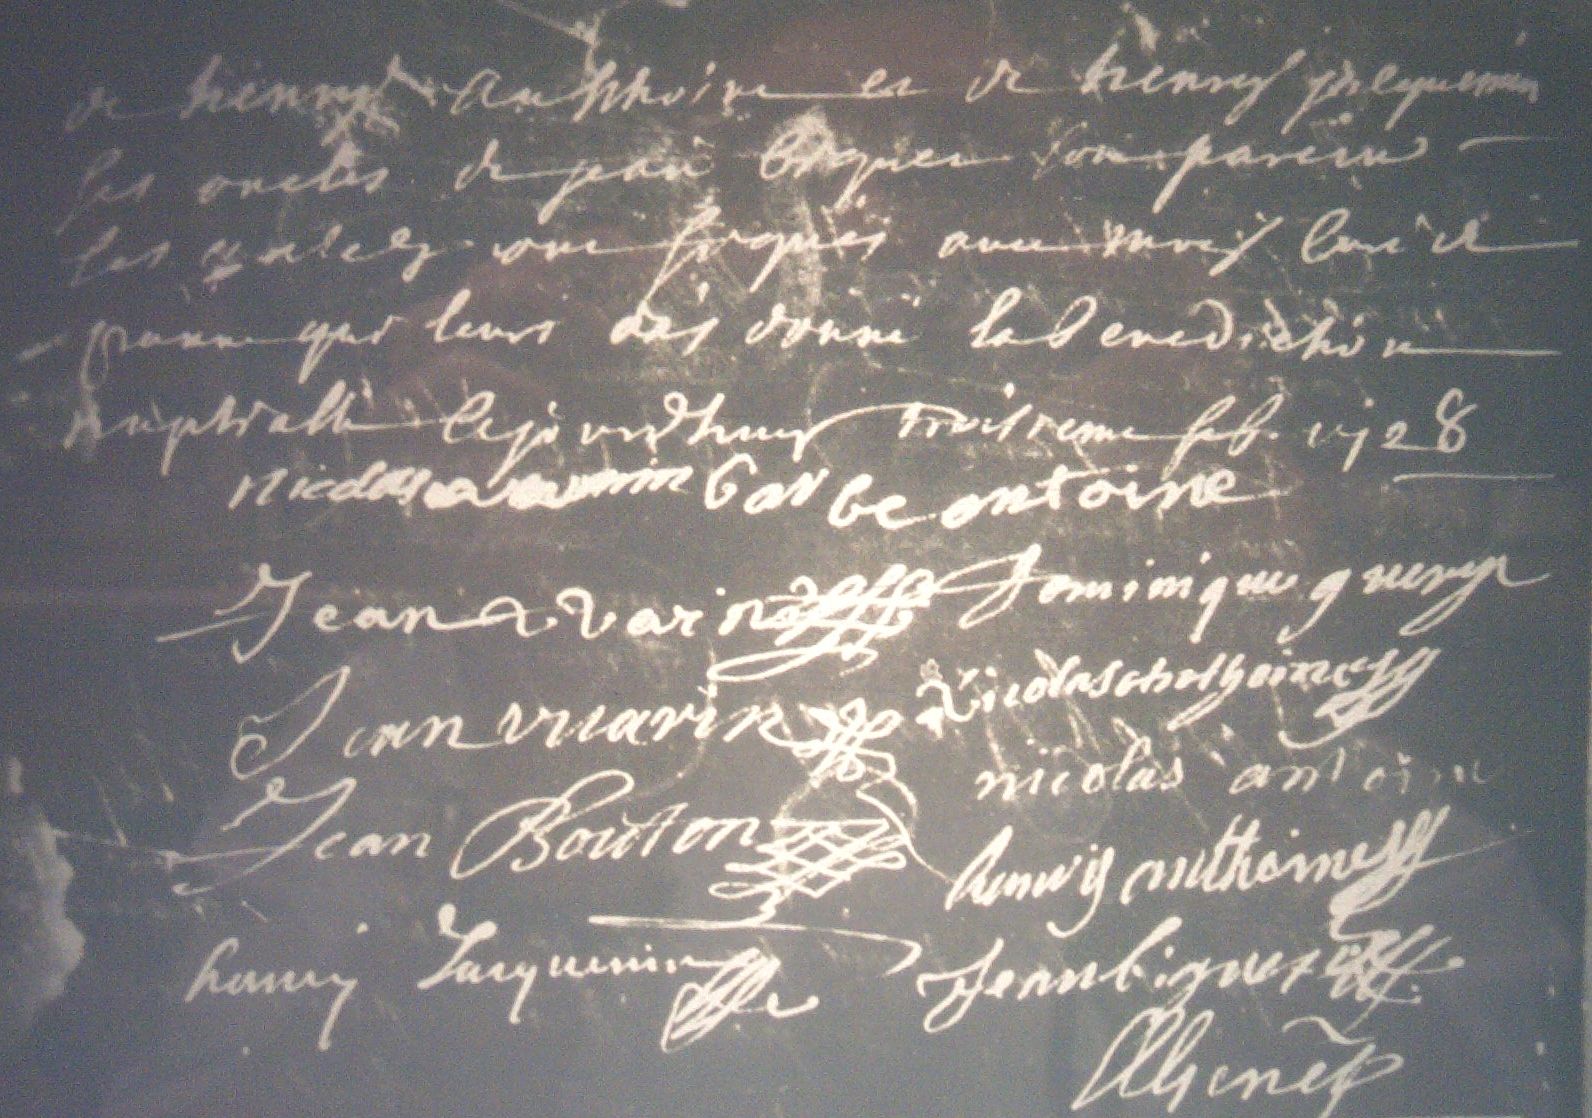 de henry Anthoine et de henry jacquemin
ses oncles de jean biquet son parein
les quels ont signés avec moy
qui leurs ais donné la benediction
nuptialle cejourdhuy troisieme feb. 1728
nicolas barbe antoine
Jean varin Dominique guery
Jean vuarin Nicolas
Jean Bouton nicolas antoine
henry anthoine
henry Jacquemin Jean biquet